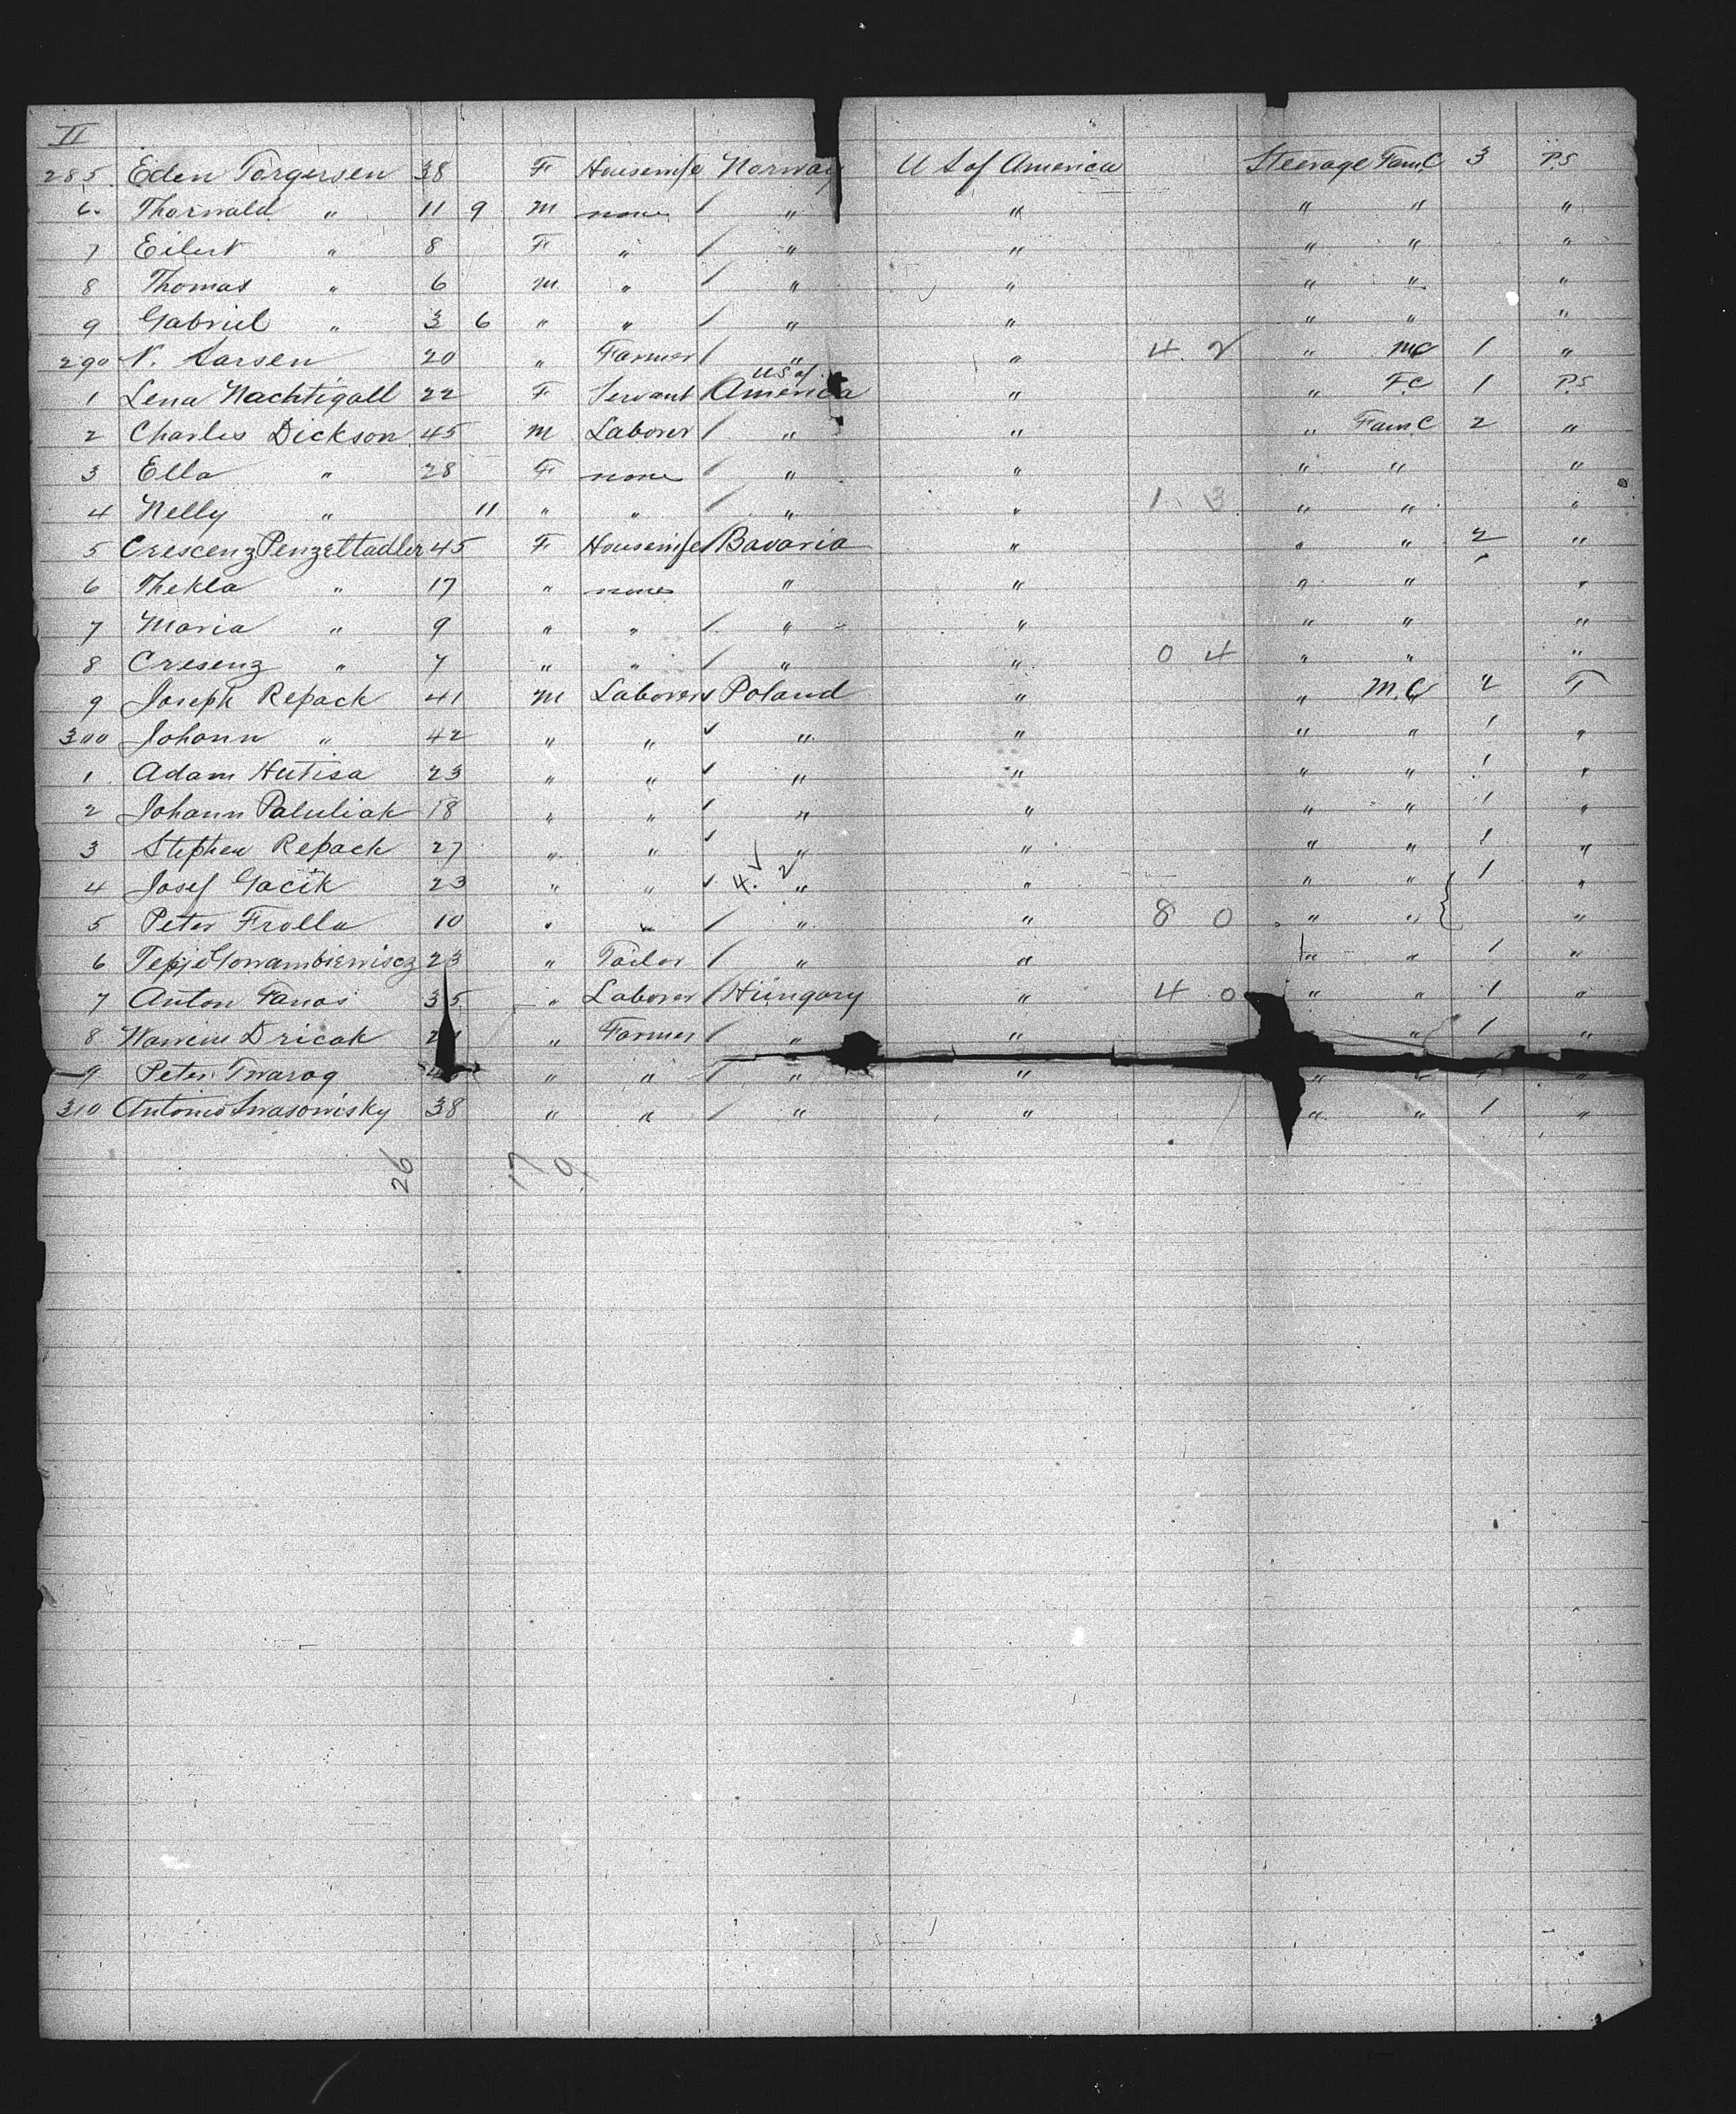 II
285. Eden Torgersen 38 F Housewife Norway U S of America Steerage Fam.C 3 P.S
6. Thorwald " 11 9 M none / " " " " "
7 Eilert " 8 F " / " " " " "
8 Thomas " 6 M " / " " " " "
9 Gabriel " 3 6 " " / " " " " "
290 N. Larsen 20 " Farmer / " " 4. 2 " MC 1 "
1 Lena Nachtigall 22 F Servant / US of America " " F.C 1 P.S
2 Charles Dickson 45 M Laborer / " " " Fam C 2 "
3 Ella " 28 F none / " " " " "
4 Nelly " 11 " " / " " 1. 3. " " "
5 Crescenz Penzeltadler 45 F Housewife / Bavaria " " " 2 "
6 Thekla " 17 " none " " " " "
7 Maria " 9 " " / " " " " "
8 Cresenz " 7 " " / " " 0 4 " " "
9 Joseph Repack 41 M Laborer ✓ Poland " " M.C T
300 Johann " 42 " " ✓ " " " " 1 "
1. Adam Hutisa 23 " " ✓ " " " " 1 "
2 Johann Paluliak 18 " " / " " " " 1 "
3 Stephen Repack 27 " " ✓ " " " " 1 "
4 Josef Gacik 23 " " ✓ 4. 2 " " " " { 1 "
5 Peter Frolla 10 " " / " " 8 0 " " "
6 23 " Tailor / " " " " 1 "
7 Anton 35 " Laborer / Hungary " 4 0 " " 1 "
8 Dricak " Farmer / " " " 1 "
9 Peter Twarog " " / " " " " "
310 Antonio 38 " " / " " " " 1 "
26 17 9